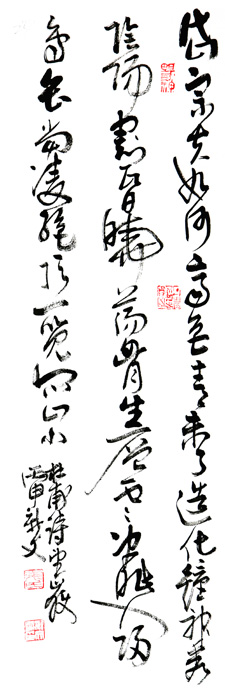 岱宗夫如何齊魯青未了造化鐘神秀
陰陽割昏曉蕩胸生層雲決眥入歸
鳥會當凌絕頂一覽眾山小
杜甫詩望嶽
丙申